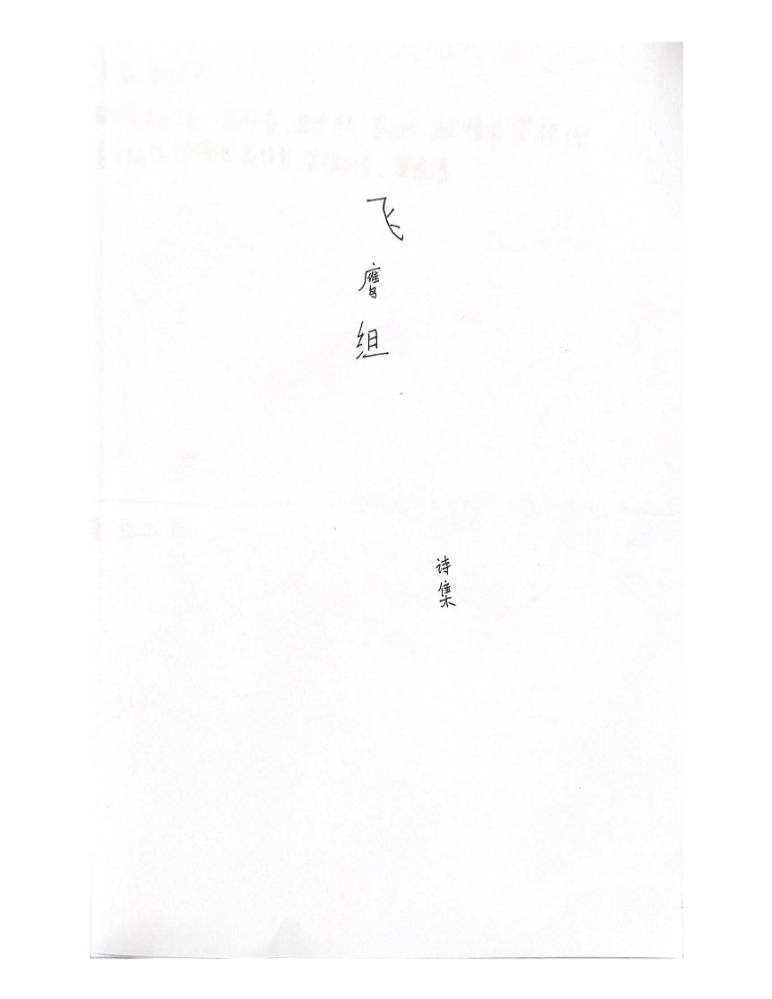 飞鹰组
诗集